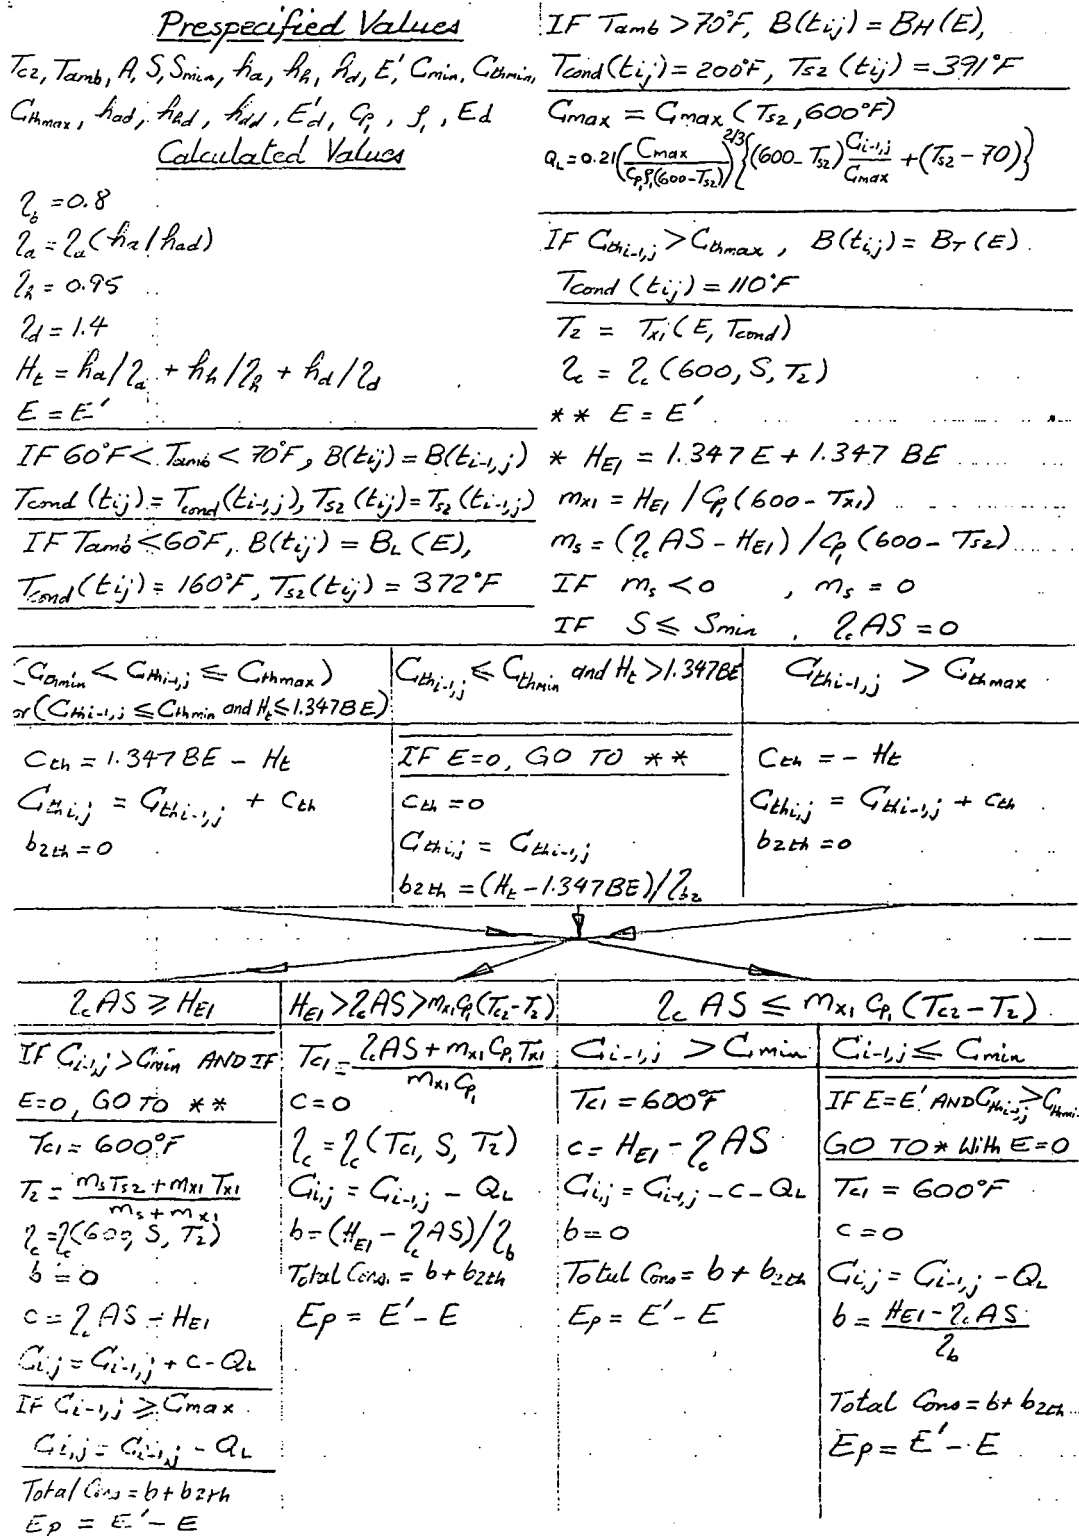 Prespecified Values
Tc2, Tamb, A, S, Smin, ha, hh, hd, E', Cmin, Cthmin,
Cthmax, had, hhd, hdd, E'd, Cp1, ρ1, Ed
Calculated Values
η_b = 0.8
η_a = η_a(ha/had)
η_h = 0.95
η_d = 1.4
H_t = ha/η_a + hh/η_h + hd/η_d
E = E'
IF 60°F < Tamb < 70°F, B(tij) = B(ti-1,j)
Tcond(tij) = Tcond(ti-1,j), Ts2(tij) = Ts2(ti-1,j)
IF Tamb < 60°F, B(tij) = BL(E),
Tcond(tij) = 160°F, Ts2(tij) = 372°F
IF Tamb > 70°F, B(tij) = BH(E),
Tcond(tij) = 200°F, Ts2(tij) = 391°F
Cmax = Cmax(Ts2, 600°F)
QL = 0.21(Cmax/Cp1ρ1(600-Ts2))^2/3{(600-Ts2)Ci-1,j/Cmax + (Ts2-70)}
IF Cthi-1,j > Cthmax, B(tij) = BT(E)
Tcond(tij) = 110°F
T2 = Tx1(E, Tcond)
η_c = η_c(600, S, T2)
** E = E'
* HE1 = 1.347E + 1.347 BE
mx1 = HE1/Cp1(600-Tx1)
ms = (η_c AS - HE1)/Cp1(600-Ts2)
IF ms < 0, ms = 0
IF S ≤ Smin, η_c AS = 0
(Cthmin < Cthi-1,j ≤ Cthmax)
or (Cthi-1,j ≤ Cthmin and Ht ≤ 1.347BE)
Cth = 1.347BE - Ht
Cthi,j = Cthi-1,j + Cth
b2th = 0
Cthi-1,j ≤ Cthmin and Ht > 1.347BE
IF E=0, GO TO **
Cth = 0
Cthi,j = Cthi-1,j
b2th = (Ht - 1.347BE)/η_b2
Cthi-1,j > Cthmax
Cth = - Ht
Cthi,j = Cthi-1,j + Cth
b2th = 0
η_c AS ≥ HE1
IF Ci-1,j > Cmin AND IF
E=0, GO TO **
Tc1 = 600°F
T2 = (msTs2 + mx1Tx1)/(ms + mx1)
η_c = η_c(600, S, T2)
b = 0
c = η_c AS - HE1
Ci,j = Ci-1,j + c - QL
IF Ci-1,j ≥ Cmax
Ci,j = Ci-1,j - QL
Total Cons = b + b2th
Ep = E' - E
HE1 > η_c AS > mx1Cp1(Tc2-T2)
Tc1 = (η_c AS + mx1Cp1Tx1)/(mx1Cp1)
c = 0
η_c = η_c(Tc1, S, T2)
Ci,j = Ci-1,j - QL
b = (HE1 - η_c AS)/η_b
Total Cons. = b + b2th
Ep = E' - E
η_c AS ≤ mx1Cp1(Tc2-T2)
Ci-1,j > Cmin
Tc1 = 600°F
c = HE1 - η_c AS
Ci,j = Ci-1,j - c - QL
b = 0
Total Cons = b + b2th
Ep = E' - E
Ci-1,j ≤ Cmin
IF E=E' AND Cthi-1,j > Cthmin
GO TO * With E=0
Tc1 = 600°F
c = 0
Ci,j = Ci-1,j - QL
b = (HE1 - η_c AS)/η_b
Total Cons = b + b2th
Ep = E' - E